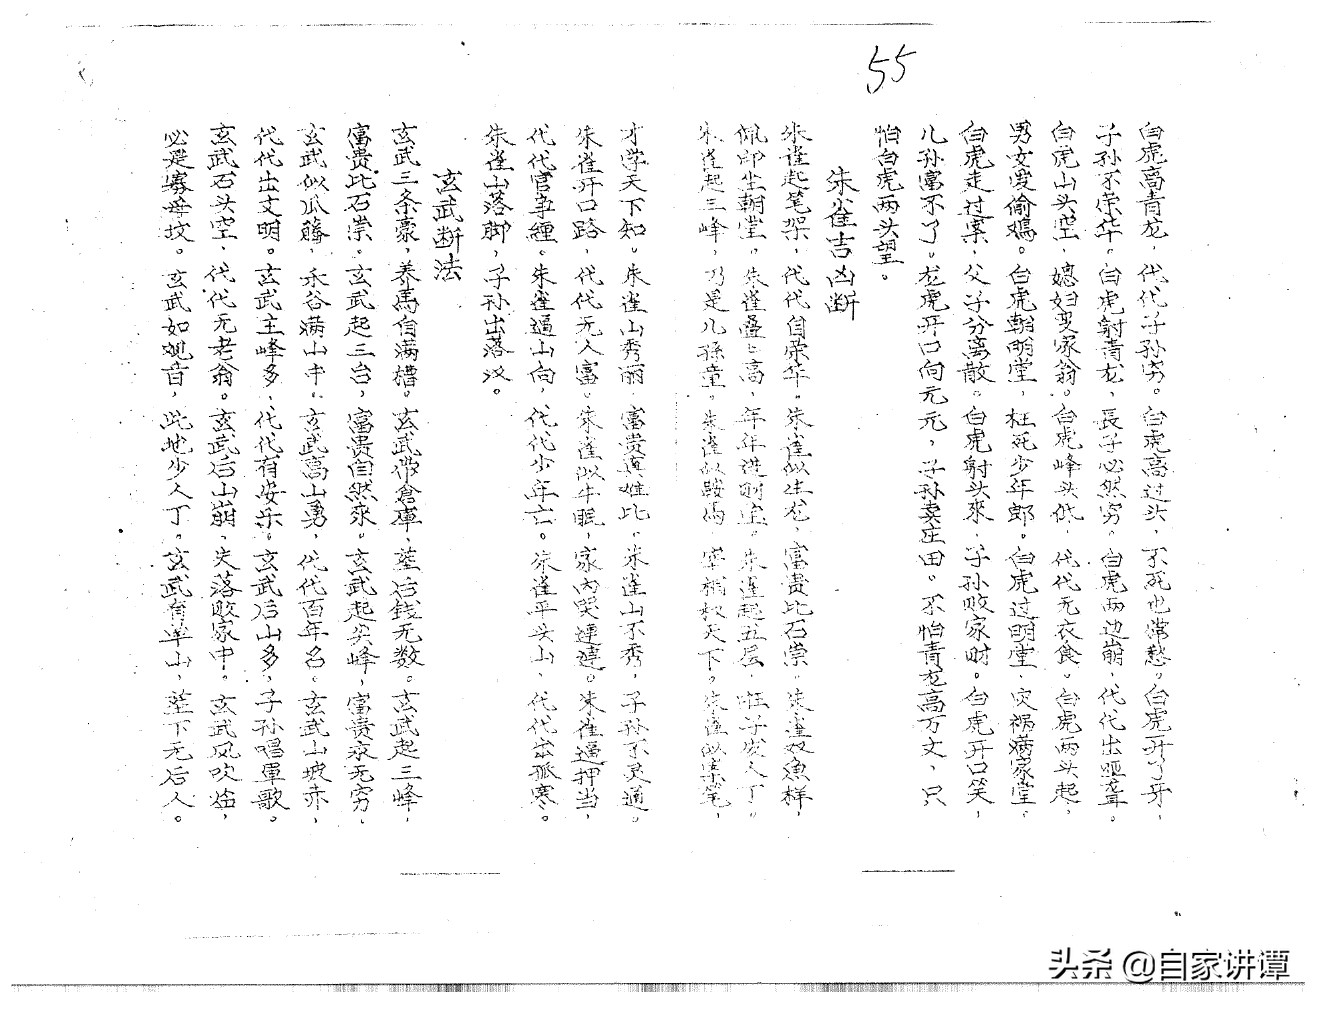 55
白虎高青龙，代代子孙穷。白虎高过头，不死也常愁。白虎开了牙，
子孙不荣华。白虎射青龙，長子必然穷。白虎两边崩，代代出哑聋。
白虎山头空，媳妇变家翁。白虎峰头低，代代无衣食。白虎两头起，
男女爱偷鸡。白虎朝明堂，枉死少年郎。白虎过明堂，灾祸满家堂。
白虎走过案，父子分离散。白虎射头来，子孙败家财。白虎开口笑，
儿孙富不了。龙虎开口向元元，子孙卖庄田。不怕青龙高万丈，只
怕白虎两头望。
朱雀吉凶断
朱雀起笔架，代代自荣华。朱雀似生龙，富贵比石崇。朱雀双魚样，
佩印坐朝堂。朱雀叠叠高，年年进财宝。朱雀起五层，旺子发人丁。
朱雀起三峰，乃是儿孫童。朱雀似鞍馬，宰相权天下。朱雀似案笔，
才学天下知。朱雀山秀丽，富贵真难比。朱雀山不秀，子孙不灵通。
朱雀开口路，代代无人富。朱雀似牛眠，家内哭連連。朱雀逼押当，
代代官争纏。朱雀逼山向，代代少年亡。朱雀平头山，代代出孤寒。
朱雀山落脚，子孙出落汉。
玄武断法
玄武三条豪，养馬自满槽。玄武带倉庫，茔后钱无数。玄武起三峰，
富贵比石崇。玄武起三台，富贵自然來。玄武起尖峰，富贵永无穷。
玄武似瓜藤，禾谷满山中。玄武高山勇，代代百年名。玄武山坡赤，
代代出文明。玄武主峰多，代代有安乐。玄武后山多，子孙唱單歌。
玄武石头空，代代无老翁。玄武后山崩，失落败家中。玄武风吹
必是寡母坟。玄武如观音，此地少人丁。玄武有羊山，茔下无后人。
头条 @自家讲谭